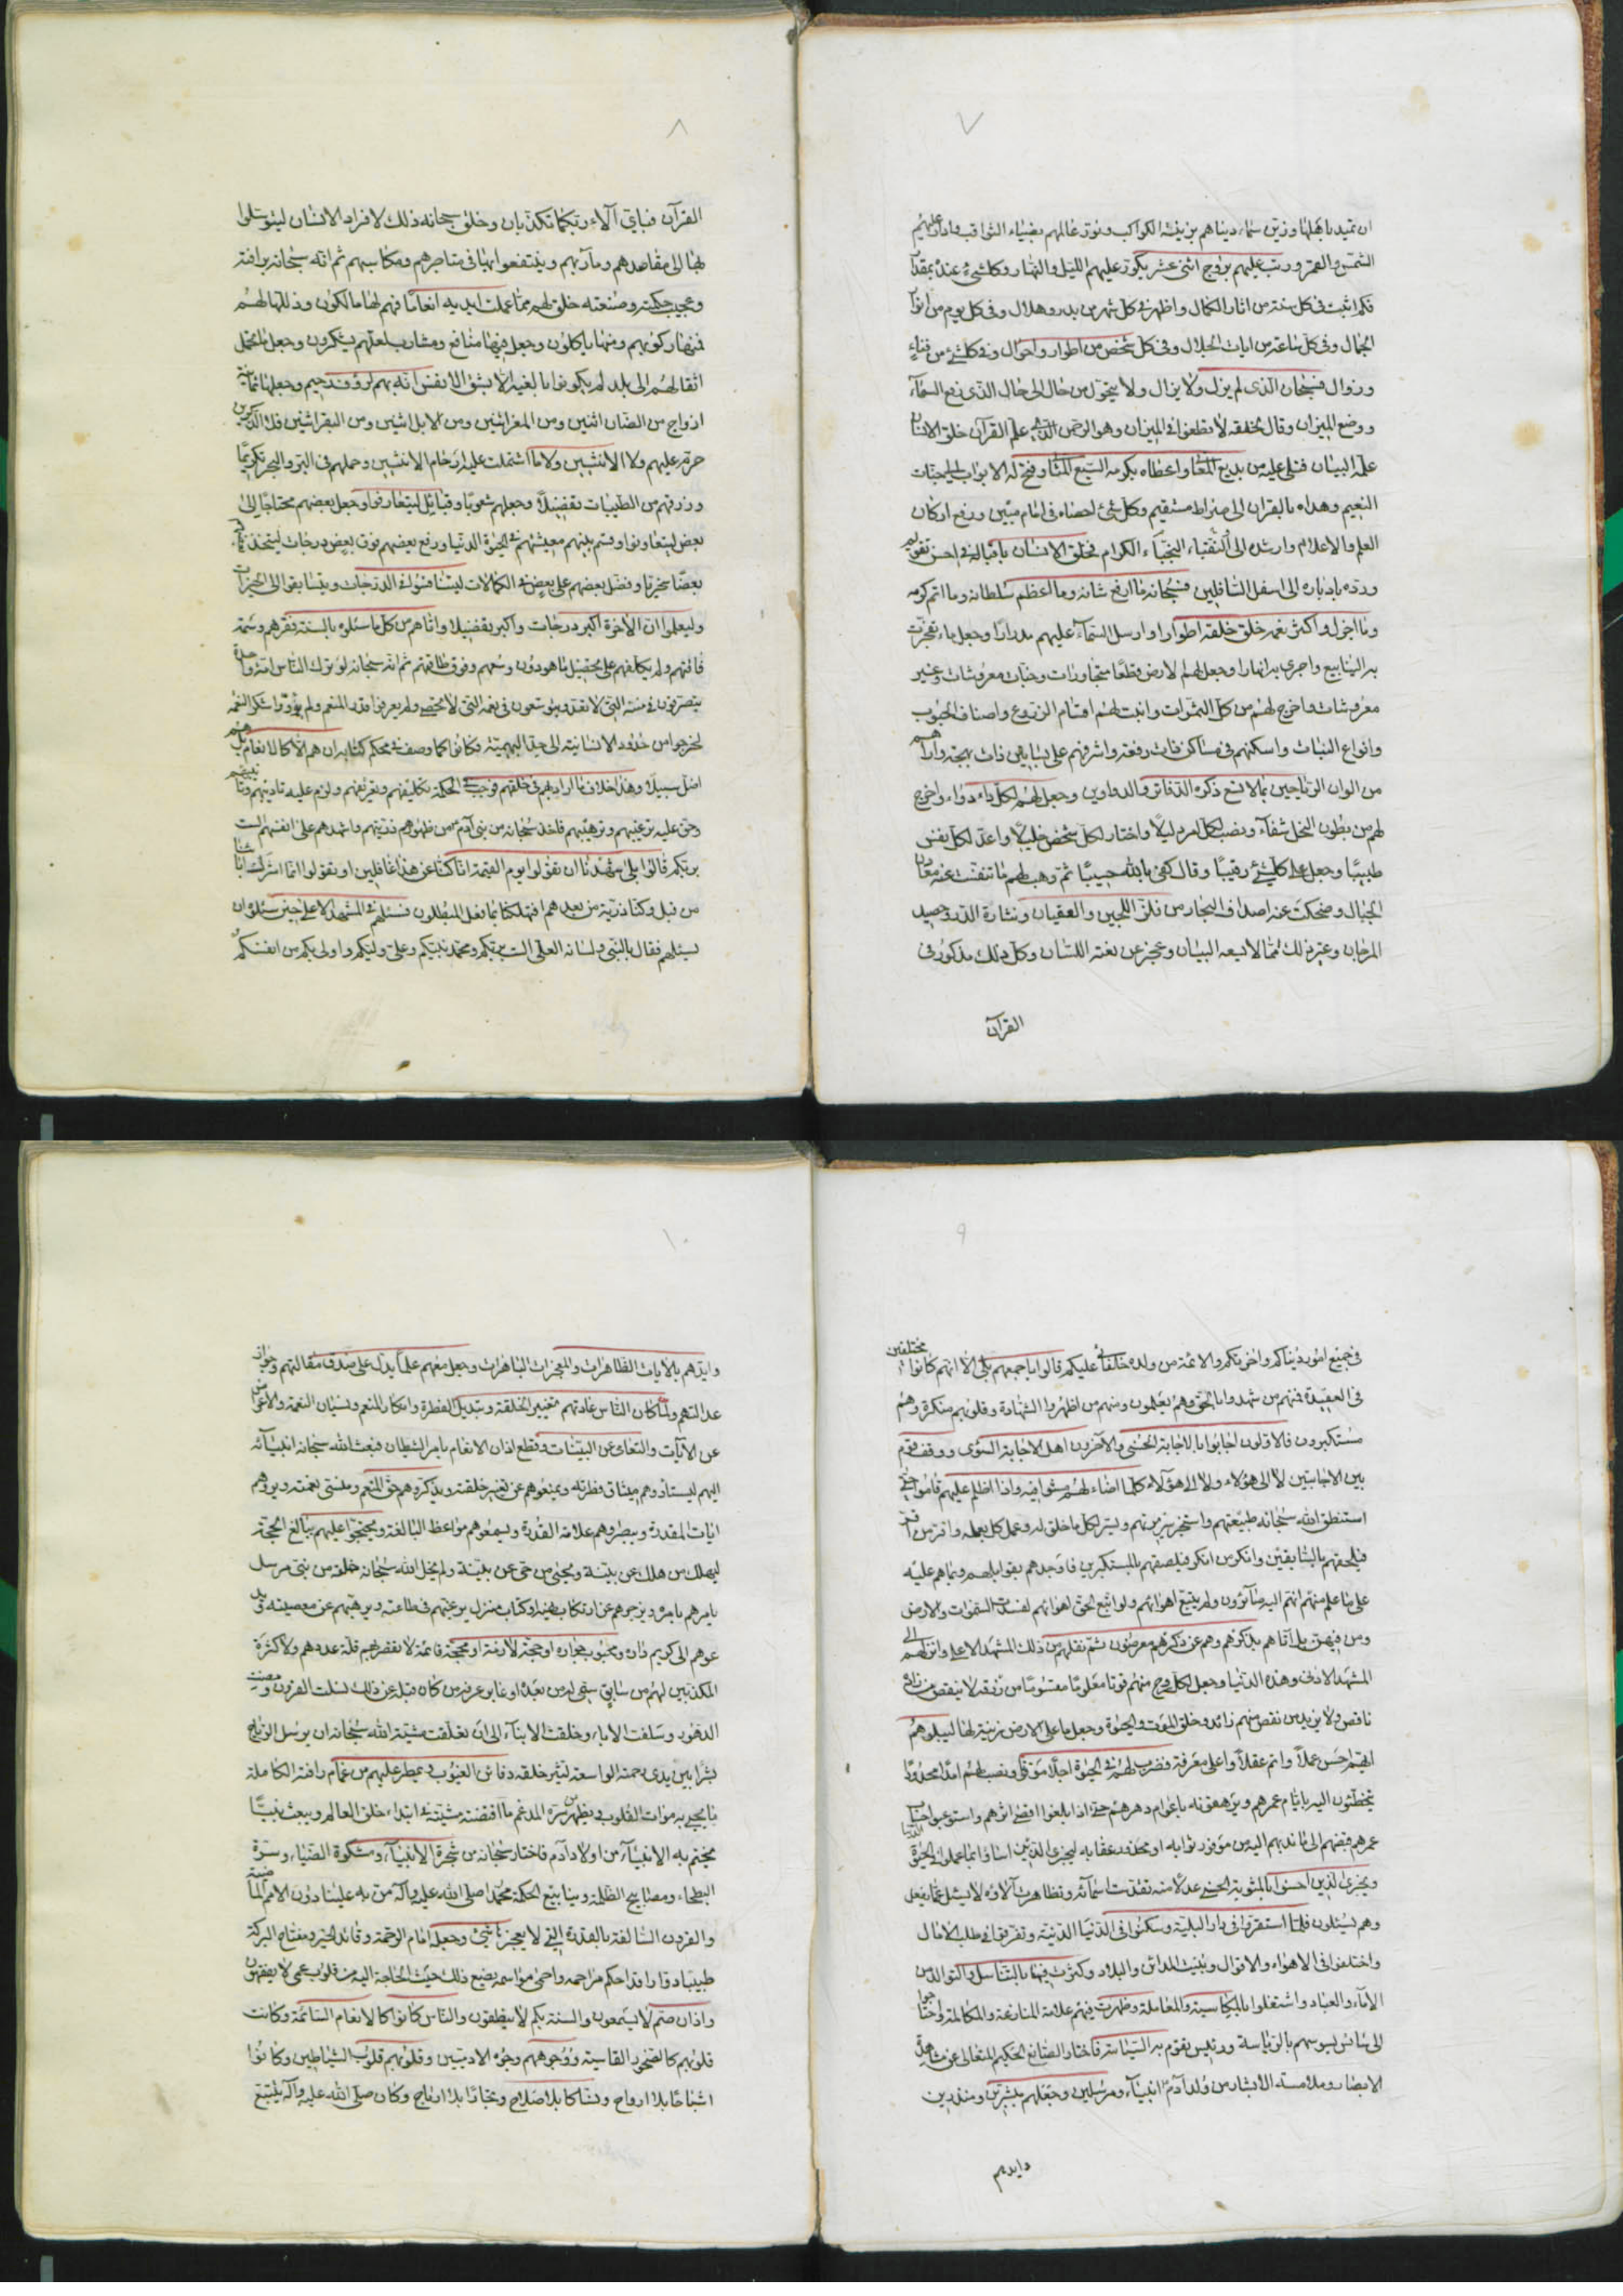 ٧
ان تميد باهلها وزين سماء دنياهم بزينة الكواكب ونور عالمهم بضياء الثواقب وادار عليهم
الشمس والقمر ورتب عليهم بروج اثنى عشر يكور عليهم الليل والنهار وكل شىء عنده بمقدار
فكم اثبت فى كل سنة من اثار الكمال واظهر فى كل شهر من بدر وهلال وفى كل يوم من انوار
الجمال وفى كل ساعة من ايات الجلال وفى كل شخص من اطوار واحوال وفى كل شىء من فناء
وزوال فسبحان الذى لم يزل ولا يزال ولا يتحول من حال الى حال الذى رفع السماء
ووضع الميزان وقال لخلقه لا تطغوا فى الميزان وهو الرحمن الذى علم القرآن خلق الانسان
علمه البيان فتلى عليه من بديع المعانى واعطاه بكرمه السبع المثانى وفتح له الابواب الى جنات
النعيم وهداه بالقران الى صراط مستقيم وكل شئ احصاه فى امام مبين ورفع اركان
العلم والاعلام وارشد الى النقباء النجباء الكرام فخلق الانسان باقباله فى احسن تقويم
ورده بادباره الى اسفل السافلين فسبحانه ما ارفع شانه وما اعظم سلطانه وما اتم كرمه
وما اجزل واكثر نعمه خلق خلقه اطوارا وارسل السماء عليهم مدرارا وجعل ماء تفجرت
به الينابيع واجرى به انهارا وجعل لهم الارض قطعا متجاورات وجنات معروشات وغير
معروشات واخرج لهم من كل الثمرات وانبت لهم اقسام الزروع واصناف الحبوب
وانواع النبات واسكنهم فى مساكن ذات رفعة واشرفهم على بساتين ذات بهجة واراهم
من الوان الرياحين ما لا تسع ذكره الدفاتر والدواوين وجعل لهم لكل داء دواء واخرج
لهم من بطون النحل شفاء ونصب لكل امر دليلا واختار لكل شخص خليلا واعد لكل نفس
طبيبا وجعل على كل شئ رقيبا وقال كفى بالله حسيبا ثم وهب لهم ما تنفست عنه معادن
الجبال وضحكت عنه اصداف البحار من فلز اللجين والعقيان ونثارة الدر وحصيد
المرجان وغير ذلك مما لا يسعه البيان وعجز عن نعته اللسان وكل ذلك مذكور فى
القرآن
٨
القرآن فباى آلاء ربكما تكذبان وخلق سبحانه ذلك لافراد الانسان ليتوسلوا
بها الى مقاصدهم ومآربهم وينتفعوا بها فى متاجرهم ومكاسبهم ثم انه سبحانه برافته
وعجيب حكمته وصنعته خلق لهم مما عملت ايديه انعاما فهم لها مالكون وذللها لهم
فمنها ركوبهم ومنها ياكلون وجعل فيها منافع ومشارب لعلهم يشكرون وجعلها تحمل
اثقالهم الى بلد لم يكونوا بالغيه الا بشق الانفس انه بهم لرؤف رحيم وجعلها ثمانية
ازواج من الضان اثنين ومن المعز اثنين ومن الابل اثنين ومن البقر اثنين قل الذكرين
حرم عليهم ولا الانثيين ولا ما اشتملت عليه ارحام الانثيين وحملهم فى البر والبحر تكريما
ورزقهم من الطيبات تفضيلا وجعلهم شعوبا وقبائل ليتعارفوا وجعل بعضهم محتاجا الى
بعض ليتعاونوا وقسم بينهم معيشتهم فى الحيوة الدنيا ورفع بعضهم فوق بعض درجات ليتخذ بعضهم
بعضا سخريا وفضل بعضهم على بعض فى الكمالات ليتنافسوا فى الدرجات ويتسابقوا الى الخيرات
وليعلموا ان الآخرة اكبر درجات واكبر تفضيلا واتاهم من كل ما سئلوه بالسنة فقرهم وسمة
فاقتهم ولم يكلفهم على تحصيل ما هو دون وسعهم وفوق طاقتهم ثم انه سبحانه لو ترك الناس امة واحدة
يتصرفون فى مننه التى لا تعد ويتوسعون فى نعمه التى لا تحصى ولم يعرفوا قدر المنعم ولم يؤدوا شكر النعمه
لخرجوا من حدود الانسانية الى حد البهيمية فكانوا كما وصف فى محكم كتابه ان هم الا كالانعام بل هم
اضل سبيلا وهذا خلاف ما اراد بهم فى خلقتهم فوجب فى الحكمة تكليفهم وتعريفهم ولزم عليه تاديبهم وتنبيههم
وحق عليه ترغيبهم وترهيبهم فاخذ سبحانه من بنى آدم من ظهورهم ذريتهم واشهدهم على انفسهم الست
بربكم قالوا بلى شهدنا ان تقولوا يوم القيمة انا كنا عن هذا غافلين او تقولوا انما اشرك اباؤنا
من قبل وكنا ذرية من بعدهم افتهلكنا بما فعل المبطلون فسئلهم فى المشهد الاعلى حين سئلوه ان
يسئلهم فقال بالنبى ولسانه العلى الست بربكم ومحمد نبيكم وعلى وليكم واولى بكم من انفسكم
٩
فى جميع امور دنياكم واخرتكم والائمة من ولده خلفائى عليكم قالوا باجمعهم بلى الا انهم كانوا مختلفين
فى العقيدة فمنهم من شهدوا بالحق وهم يعلمون ومنهم من اظهروا الشهادة وقلوبهم منكرة وهم
مستكبرون فالاولون اجابوا بالاجابة الحسنى والآخرون اهل الاجابة السوئى ووقف قوم
بين الاجابتين لا الى هؤلاء ولا الى هؤلاء كلما اضاء لهم مشوا فيه واذا اظلم عليهم قاموا حتى
استنطق الله سبحانه طبيعتهم واستخرج سرهم ويسر لكل ما خلق له وعمل كل بعمله واقر من اقر
فيلحقهم بالسابقين وانكر من انكر فيلصقهم بالمستكبرين فاوجدهم بقوابلهم وبما هم عليه
على ما علم منهم انهم اليه صائرون ولم يتبع اهوائهم ولو اتبع الحق اهوائهم لفسدت السموات والارض
ومن فيهن بل اتاهم بذكرهم وهم عن ذكرهم معرضون ثم نقلهم من ذلك المشهد الاعلى وانزلهم الى
المشهد الادنى وهذه الدنيا وجعل لكل روح منهم قوتا معلوما مقسوما من رزقه لا ينقص من زاده
ناقص ولا يزيد من نقص منهم زائد وخلق الموت والحيوة وجعل ما على الارض زينة لها ليبلوهم
ايهم احسن عملا واتم عقلا واعلى معرفة فضرب لهم فى الحيوة اجلا موقتا ونصب لهم امدا محدودا
يتخطئون اليه بايام عمرهم ويرهقونه باعوام دهرهم حتى اذا بلغوا اقصى اثرهم واستوعبوا حساب
عمرهم قبضهم الى ما ندبهم اليه من موفور ثوابه او محذور عقابه ليجزى الذين اساؤا بما عملوا فى الحيوة الدنيا
ويجزى الذين احسنوا بالمثوبة الحسنى عدلا منه تقدست اسمائه وتظاهرت آلاؤه لا يسئل عما يفعل
وهم يسئلون فلما استقروا فى دار البلية وسكنوا فى الدنيا الدنية وتفرقوا فى طلب الامال
واختلفوا فى الاهواء والاقوال وبنيت المدائن والبلاد وكثرت فيها بالتناسل والتوالد من
الاماء والعباد واشتغلوا بالمكاسبة والمعاملة وظهرت فيهم علامة المنازعة والمكالمة واحتاجوا
الى سائس يسوسهم بالرياسة ورئيس يقوم به السياسة فاختار الصانع الحكيم المتعالى عن مشاهدة
الابصار وملامسة الابشار من ولد آدم انبياء ومرسلين وجعلهم مبشرين ومنذرين
وايدهم
١٠
وايدهم بالآيات الظاهرات والمعجزات الباهرات وجعل معهم علما يدل على صدق مقالتهم وجواز
عدالتهم ولما كان الناس عادتهم تغيير الخلقة وتبديل الفطرة وانكار المنعم ونسيان النعمة والاعراض
عن الآيات والتعامى عن البينات وقطع اذان الانعام بامر الشيطان فبعث الله سبحانه انبيائه
اليهم ليستادوهم ميثاق فطرته ويمنعوهم عن تغيير خلقته ويذكروهم حق المنعم ومنسى نعمته ويروهم
ايات المقدرة ويبصروهم علامة القدرة ويسمعوهم مواعظ البالغة ويحتجوا عليهم ببالغ الحجة
ليهلك من هلك عن بينة ويحيى من حى عن بينة ولم يخل الله سبحانه خلقه من نبى مرسل
يامرهم بامره ويزجرهم عن ارتكاب نهيه او كتاب منزل يرغبهم فى طاعته ويرهبهم عن معصيته ويدعوهم
عوهم الى كريم داره ومحبوب جواره او حجة لازمة او محجة قائمة لا تقصر بهم قلة عددهم ولا كثرة
المكذبين لهم من سابق سمى له من بعده او غابر عرفه من كان قبله عن ذلك نسلت القرون ومضت
الدهور وسلفت الاباء وخلقت الابناء الى ان تعلقت مشية الله سبحانه ان يرسل الرياح
بشرا بين يدى رحمته الواسعة لتثير خلقه دقائق الغيوب ويمطر عليهم من غمام رافته الكاملة
ما يحيى به موات القلوب ويظهر من سره المدغم ما اقتضته مشيته فى ابتداء خلق العالم ويبعث نبيا
يختم به الانبياء من اولاد آدم فاختار سبحانه من شجرة الانبياء ومشكوة الضياء وسرة
البطحاء ومصابيح الظلمة وينابيع الحكمة محمدا صلى الله عليه وآله من به علينا دون الامم الماضية
والقرون السالفة بالقدرة التى لا يعجزها شئ وجعله امام الرحمة وقائد الخير ومفتاح البركة
طبيبا دوارا قد احكم مراحمه واحمى مواسمه يضع ذلك حيث الحاجة اليه من قلوب عمى لا يفقهون
واذان صم لا يسمعون والسنة بكم لا ينطقون والناس كانوا كالانعام السائمة وكانت
قلوبهم كالصخور القاسية ووجوههم وجوه الادميين وقلوبهم قلوب الشياطين وكانوا
اشباحا بلا ارواح ونساكا بلا صلاح وتجارا بلا ارباح وكان صلى الله عليه وآله يتتبع